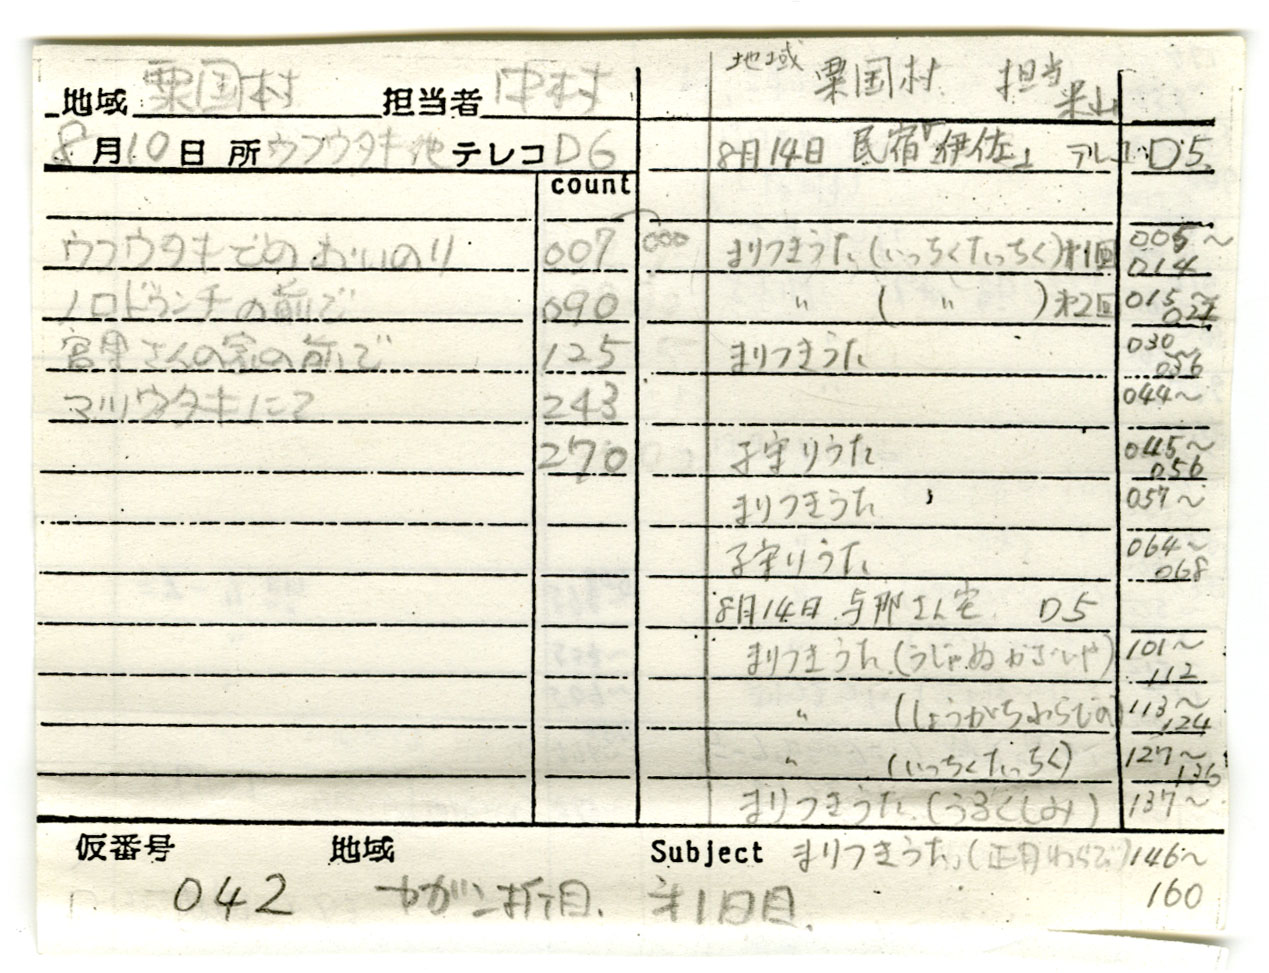 地域 粟国村 担当者 中村
8月10日 所 ウフウタキ他 テレコ D6
count
ウフウタキでのおいのり 007
ノロドゥンチの前で 090
宮里さんの家の前で 125
マツウタキにて 243
270
000
地域 粟国村 担当 米山
8月14日 民宿「伊佐」 テレコ D5
まりつきうた(いっちくたっちく)才1回 005~014
〃 ( 〃 )才2回 015
まりつきうた 030~036
044~
子守りうた 045~056
まりつきうた 057~
子守りうた 064~068
8月14日 与那さん宅 D5
まりつきうた(うじゃぬかざいや) 101~112
〃 (しょうがちわらびの) 113~124
〃 (いっちくたっちく) 127~136
まりつきうた(うるくしみ) 137~
まりつきうた(正月わらび) 146~160
仮番号 地域 Subject
042 ヤガン折目 才1日目